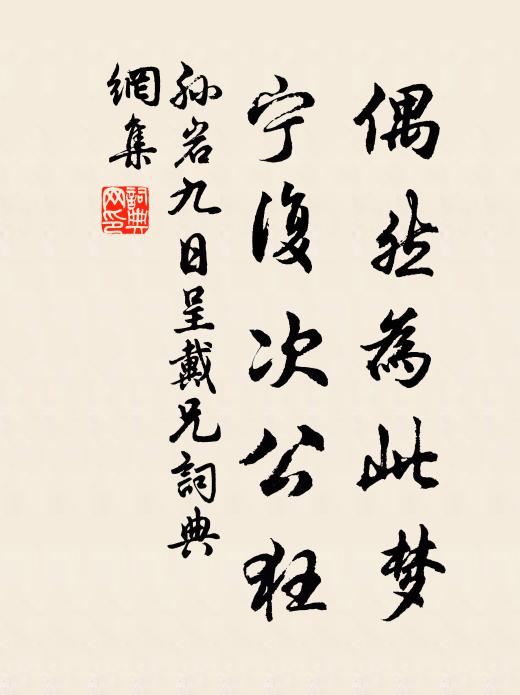 偶然為此梦
宁復次公狂
孙岩九日呈戴兄詞典
網集
詞典
网印